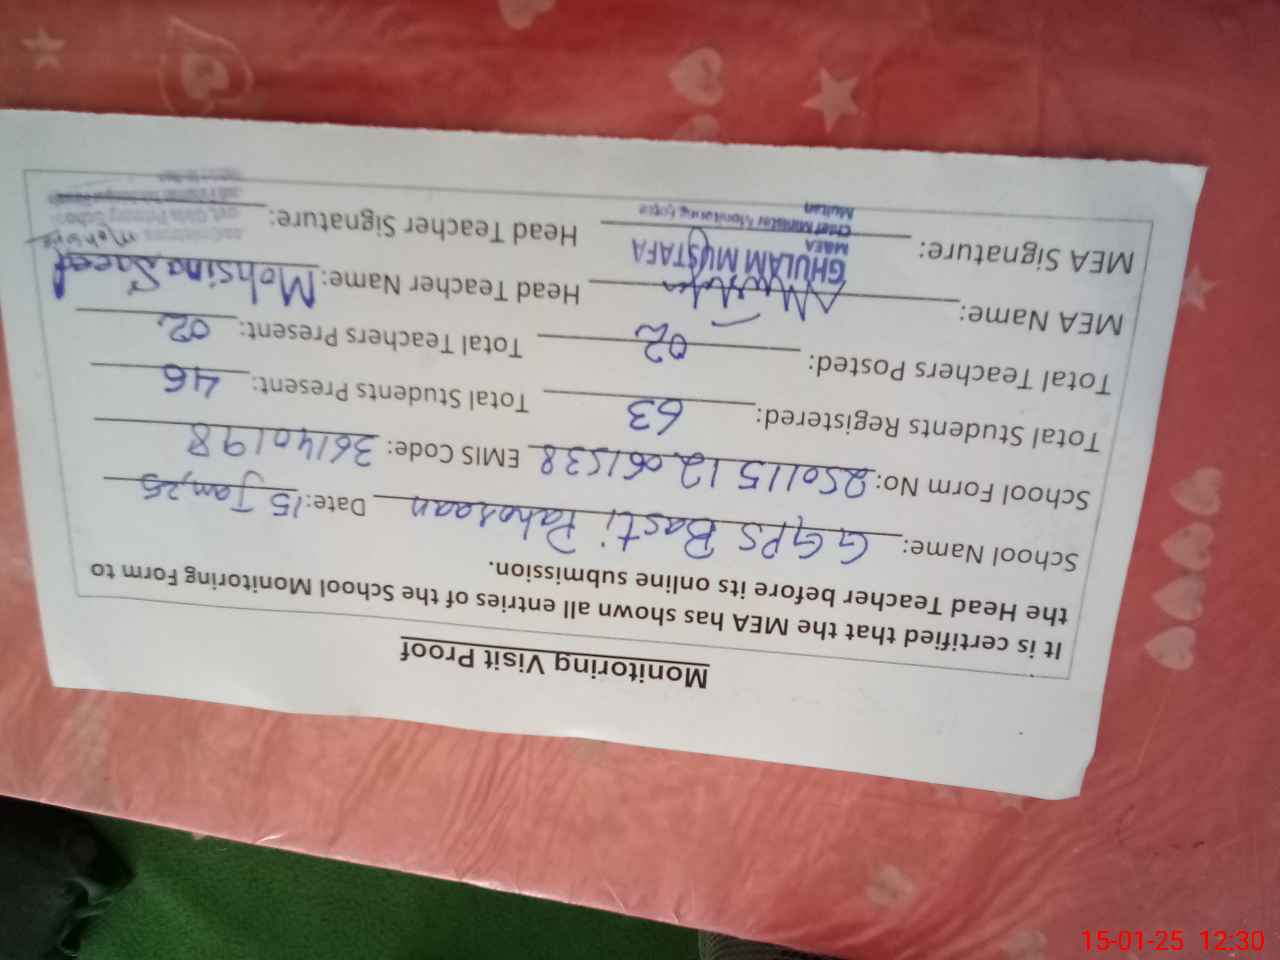 Monitoring Visit Proof
It is certified that the MEA has shown all entries of the School Monitoring Form to
the Head Teacher before its online submission.
School Name: GGPS Basti Pahoraan Date: 15 Jan, 25
School Form No: 250115 12 061538 EMIS Code: 36140198
Total Students Registered: 63 Total Students Present: 46
Total Teachers Posted: 02 Total Teachers Present: 02
MEA Name: Head Teacher Name: Mohsina Saeed
GHULAM MUSTAFA
MEA Signature: Head Teacher Signature:
M&EA
Chief Minister Monitoring Force
Multan
15-01-25 12:30